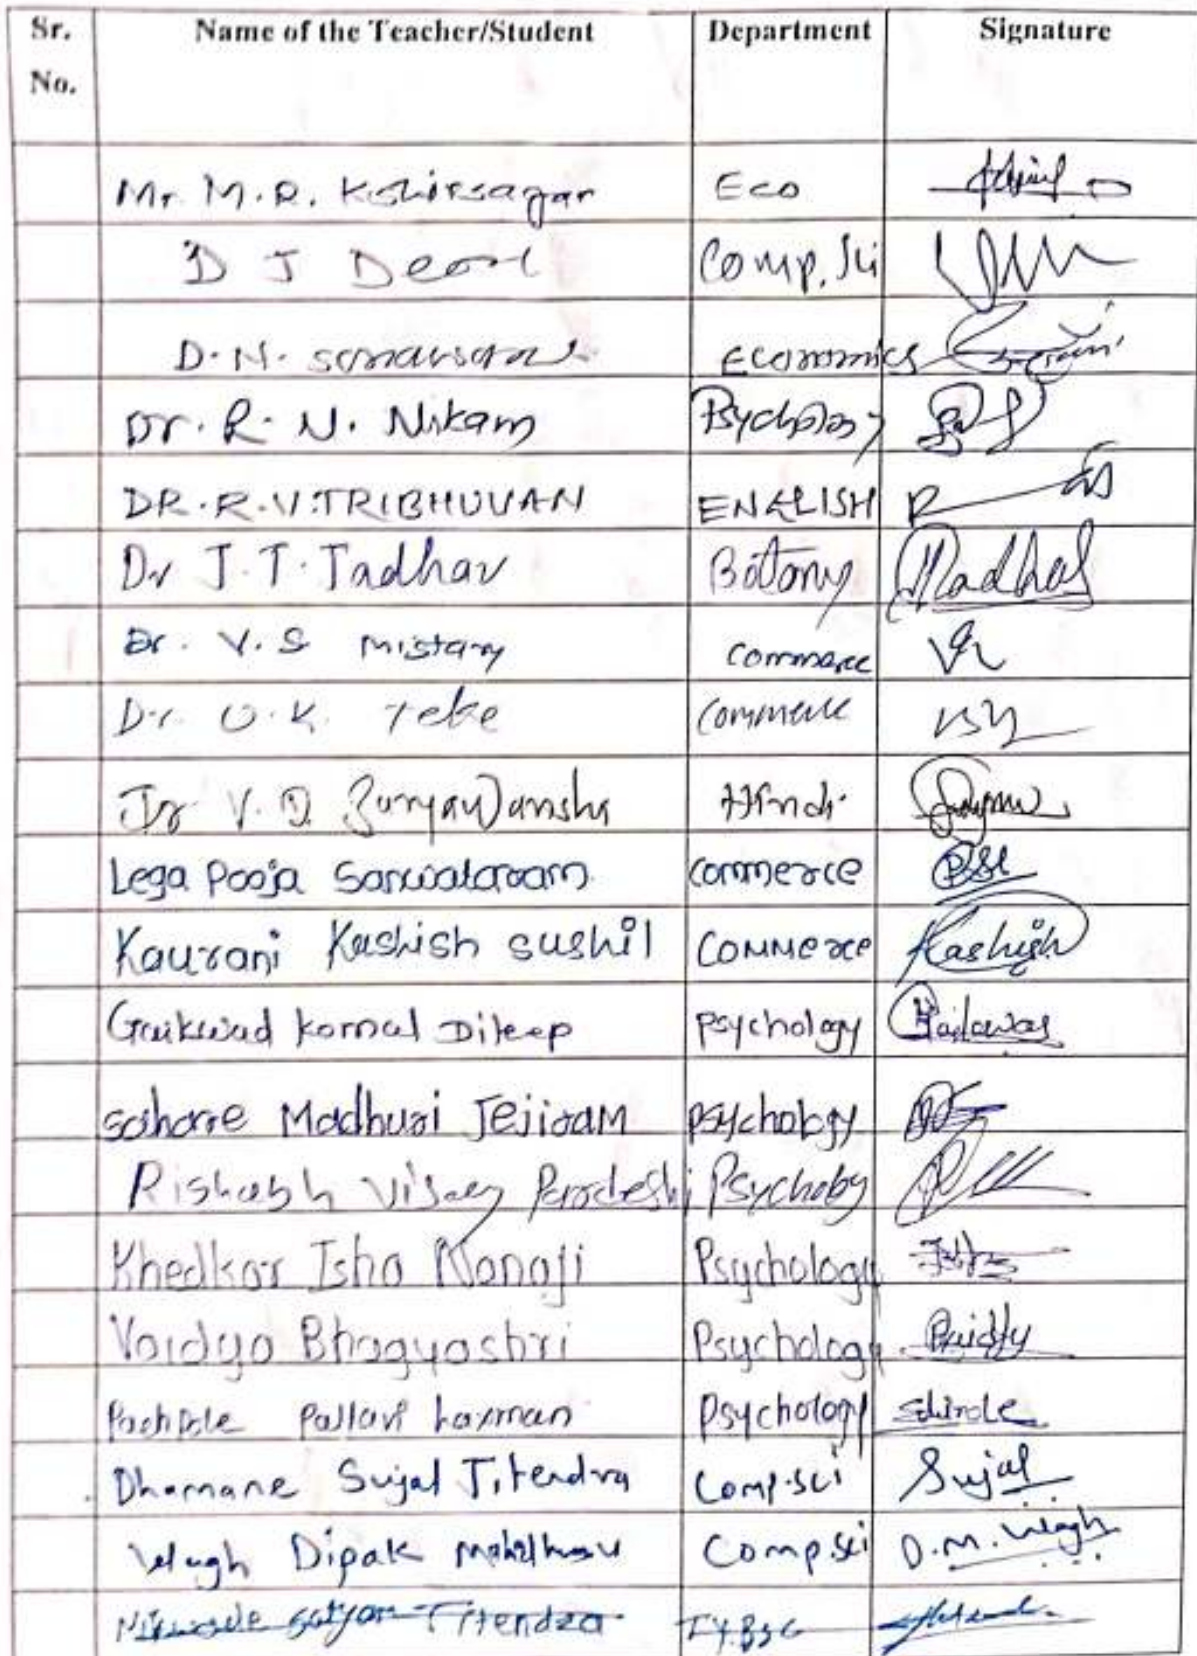 Sr. No. Name of the Teacher/Student Department Signature
Mr M.R. Kshirsagar Eco
D J Deore Comp. Sci
D.N. Sonawane Economics
Dr. R. N. Nikam Psychology
DR. R.V. TRIBHUVAN ENGLISH
Dr J.T. Jadhav Botany Jadhav
Dr. V.S Mistary commerce
Dr. U.K. Teke Commerce
Dr V.D. Suryawanshi Hindi
Lega Pooja commerce
Kaurani Kashish sushil COMMerce Kashish
Gaikwad Komal Dileep psychology
Madhuri psychology
Rishabh Vijay Pardeshi Psychology
Khedkar Isha Nanaji Psychology
Vaidya Bhagyashri Psychology
Pallavi Laxman Psychology
Dhamane Sujal Jitendra Comp.sci Sujal
Wagh Dipak Comp.sci D.M. Wagh
Jitendra T.Y.BSc